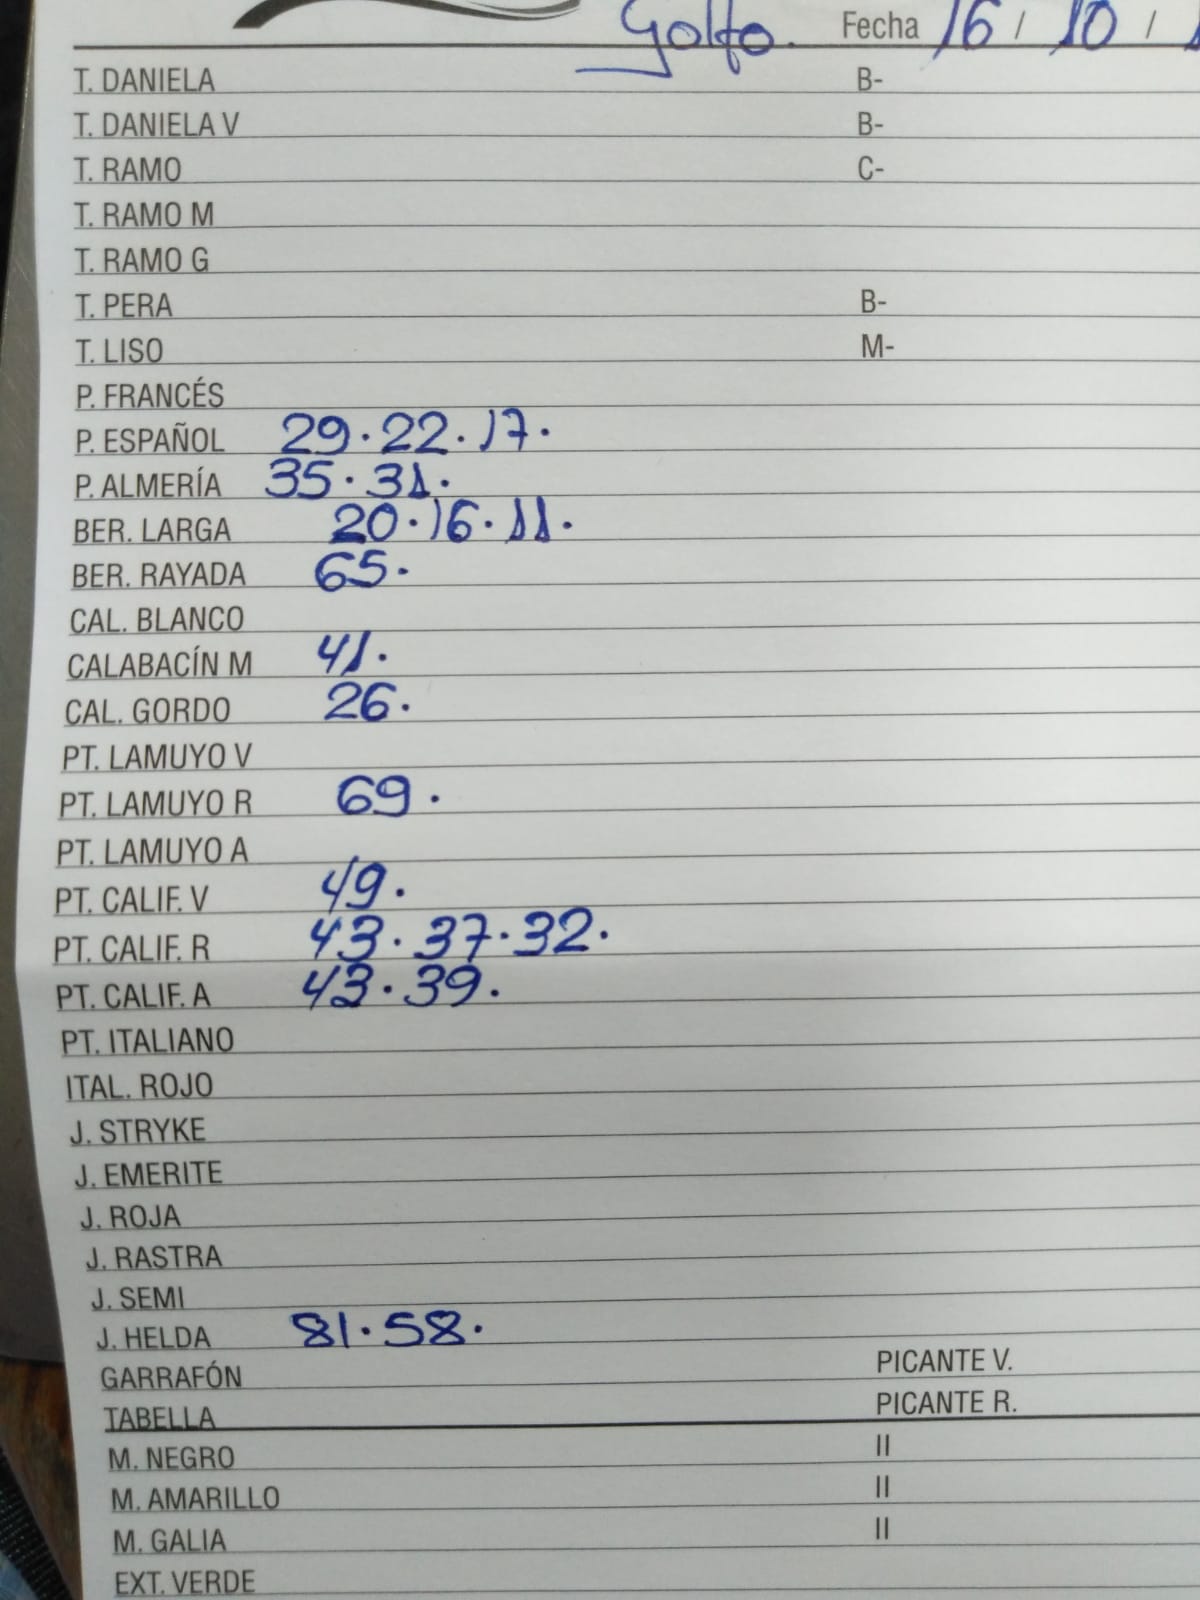 Golfo. Fecha 16 / 10 /
T. DANIELA B-
T. DANIELA V B-
T. RAMO C-
T. RAMO M
T. RAMO G
T. PERA B-
T. LISO M-
P. FRANCÉS
P. ESPAÑOL 29 · 22 · 17 ·
P. ALMERÍA 35 · 31 ·
BER. LARGA 20 · 16 · 11 ·
BER. RAYADA 65 ·
CAL. BLANCO
CALABACÍN M 41 ·
CAL. GORDO 26 ·
PT. LAMUYO V
PT. LAMUYO R 69 ·
PT. LAMUYO A
PT. CALIF. V 49 ·
PT. CALIF. R 43 · 37 · 32 ·
PT. CALIF. A 43 · 39 ·
PT. ITALIANO
ITAL. ROJO
J. STRYKE
J. EMERITE
J. ROJA
J. RASTRA
J. SEMI
J. HELDA 81 · 58 ·
GARRAFÓN PICANTE V.
TABELLA PICANTE R.
M. NEGRO II
M. AMARILLO II
M. GALIA II
EXT. VERDE